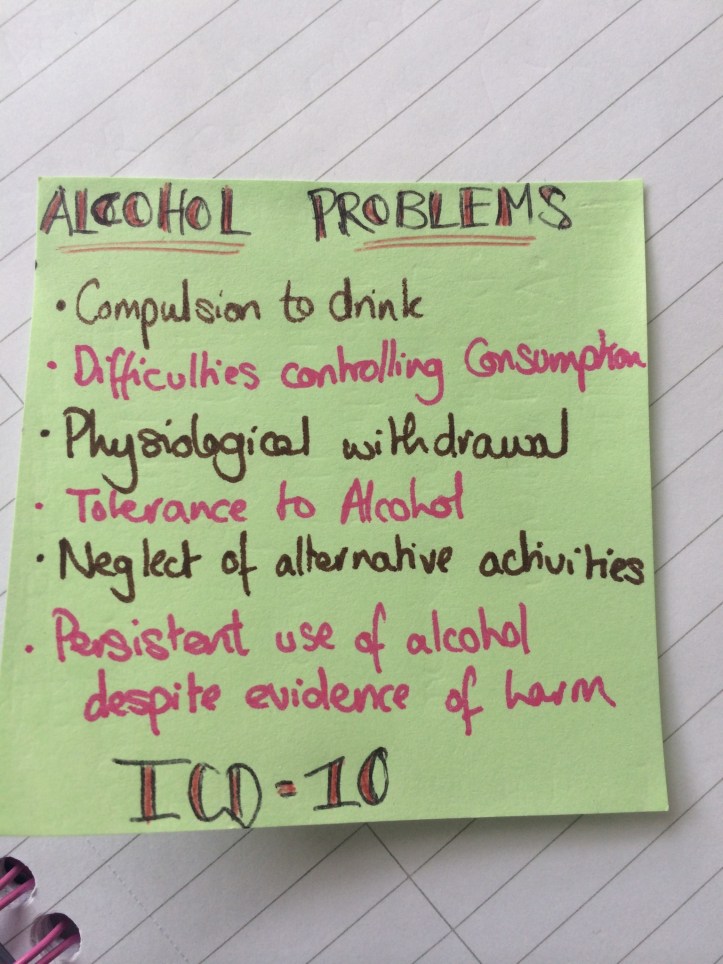 ALCOHOL PROBLEMS
• Compulsion to drink
• Difficulties controlling Consumption
• Physiological withdrawal
• Tolerance to Alcohol
• Neglect of alternative activities
• Persistent use of alcohol
despite evidence of harm
ICD-10